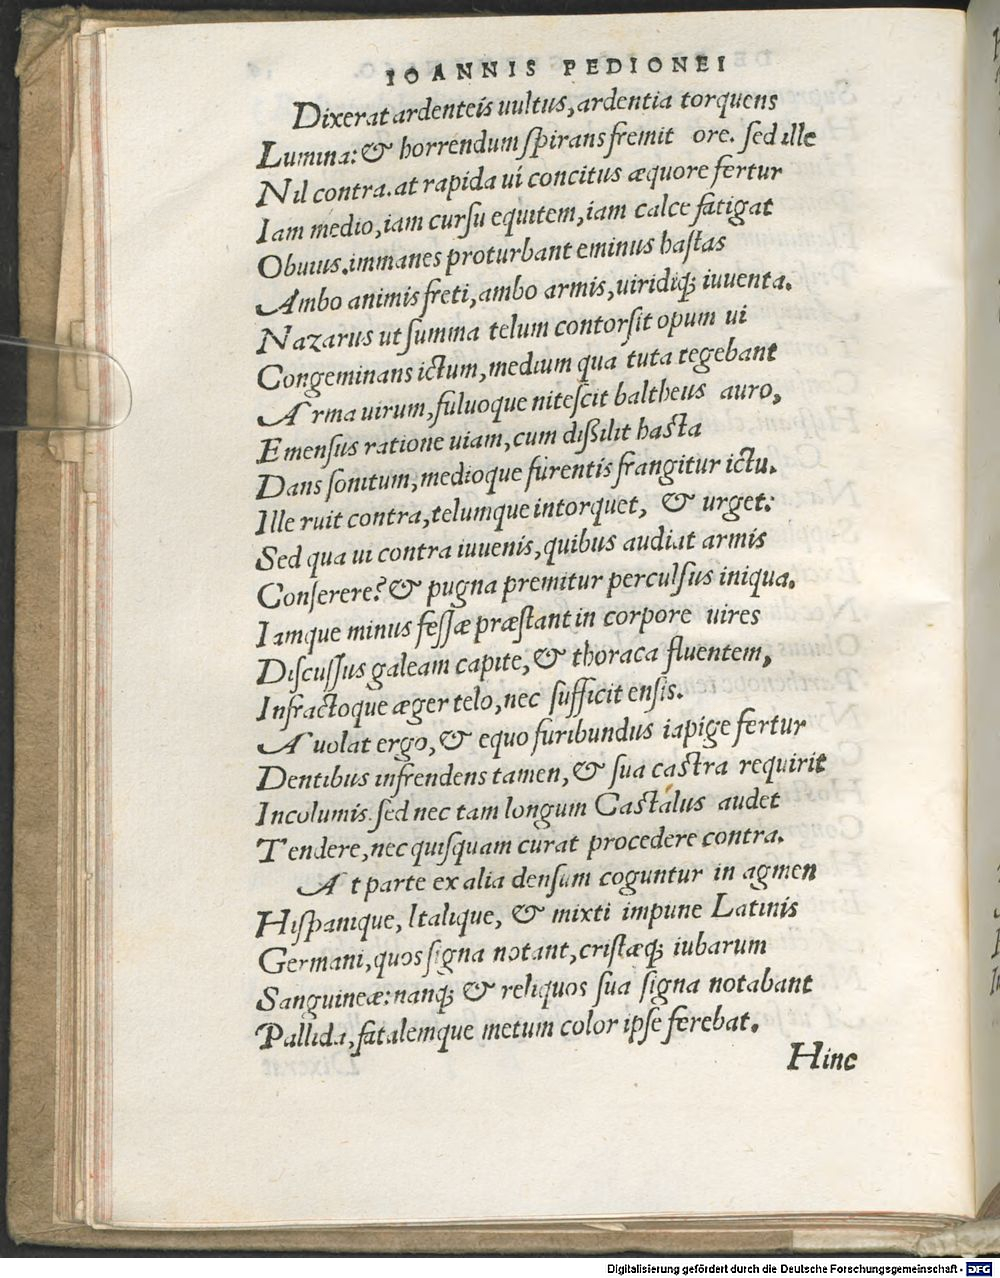 IOANNIS PEDIONEI
Dixerat ardenteis uultus, ardentia torquens
Lumina: & horrendum spirans fremit ore. sed ille
Nil contra. at rapida ui concitus æquore fertur
Iam medio, iam cursu equitem, iam calce fatigat
Obuius. immanes proturbant eminus hastas
Ambo animis freti, ambo armis, uiridiq; iuuenta.
Nazarus ut summa telum contorsit opum ui
Congeminans ictum, medium qua tuta tegebant
Arma uirum, fuluoque nitescit baltheus auro,
Emensus ratione uiam, cum dißilit hasta
Dans sonitum, medioque furentis frangitur ictu.
Ille ruit contra, telumque intorquet, & urget:
Sed qua ui contra iuuenis, quibus audiat armis
Conserere? & pugna premitur perculsus iniqua.
Iamque minus fessæ præstant in corpore uires
Discussus galeam capite, & thoraca fluentem,
Infractoque æger telo, nec sufficit ensis.
Auolat ergo, & equo furibundus iapige fertur
Dentibus infrendens tamen, & sua castra requirit
Incolumis. sed nec tam longum Castalus audet
Tendere, nec quisquam curat procedere contra.
At parte ex alia densum coguntur in agmen
Hispanique, Italique, & mixti impune Latinis
Germani, quos signa notant, cristæq; iubarum
Sanguineæ: nanq; & reliquos sua signa notabant
Pallida, fatalemque metum color ipse ferebat.
Hinc
Digitalisierung gefördert durch die Deutsche Forschungsgemeinschaft - DFG